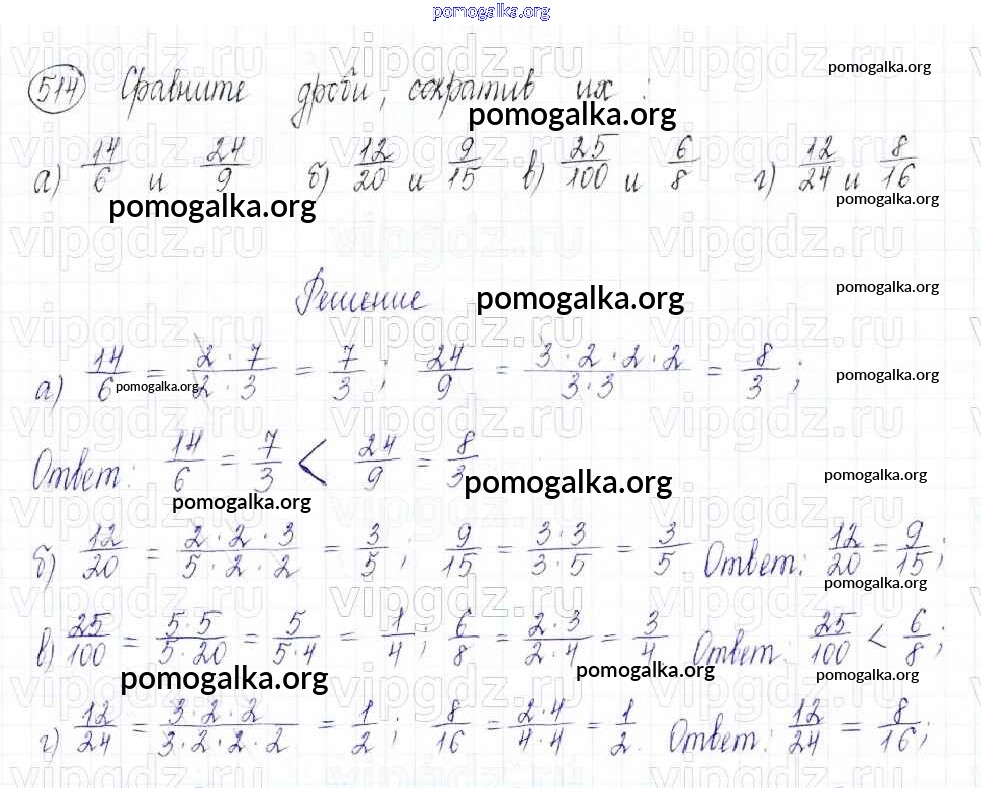 pomogalka.org
514 Сравните дроби, сократив их: pomogalka.org
pomogalka.org
а) 14/6 и 24/9 б) 12/20 и 9/15 в) 25/100 и 6/8 г) 12/24 и 8/16
pomogalka.org pomogalka.org
vipgdz.ru vipgdz.ru vipgdz.ru
Решение pomogalka.org pomogalka.org
а) 14/6 = 2·7/2·3 = 7/3; 24/9 = 3·2·2·2/3·3 = 8/3;
pomogalka.org pomogalka.org
Ответ: 14/6 = 7/3 < 24/9 = 8/3
pomogalka.org pomogalka.org pomogalka.org
б) 12/20 = 2·2·3/5·2·2 = 3/5; 9/15 = 3·3/3·5 = 3/5. Ответ: 12/20 = 9/15;
pomogalka.org
в) 25/100 = 5·5/5·20 = 5/5·4 = 1/4; 6/8 = 2·3/2·4 = 3/4 Ответ: 25/100 < 6/8;
pomogalka.org pomogalka.org pomogalka.org
г) 12/24 = 3·2·2/3·2·2·2 = 1/2; 8/16 = 2·4/4·4 = 1/2. Ответ: 12/24 = 8/16;
pomogalka.org